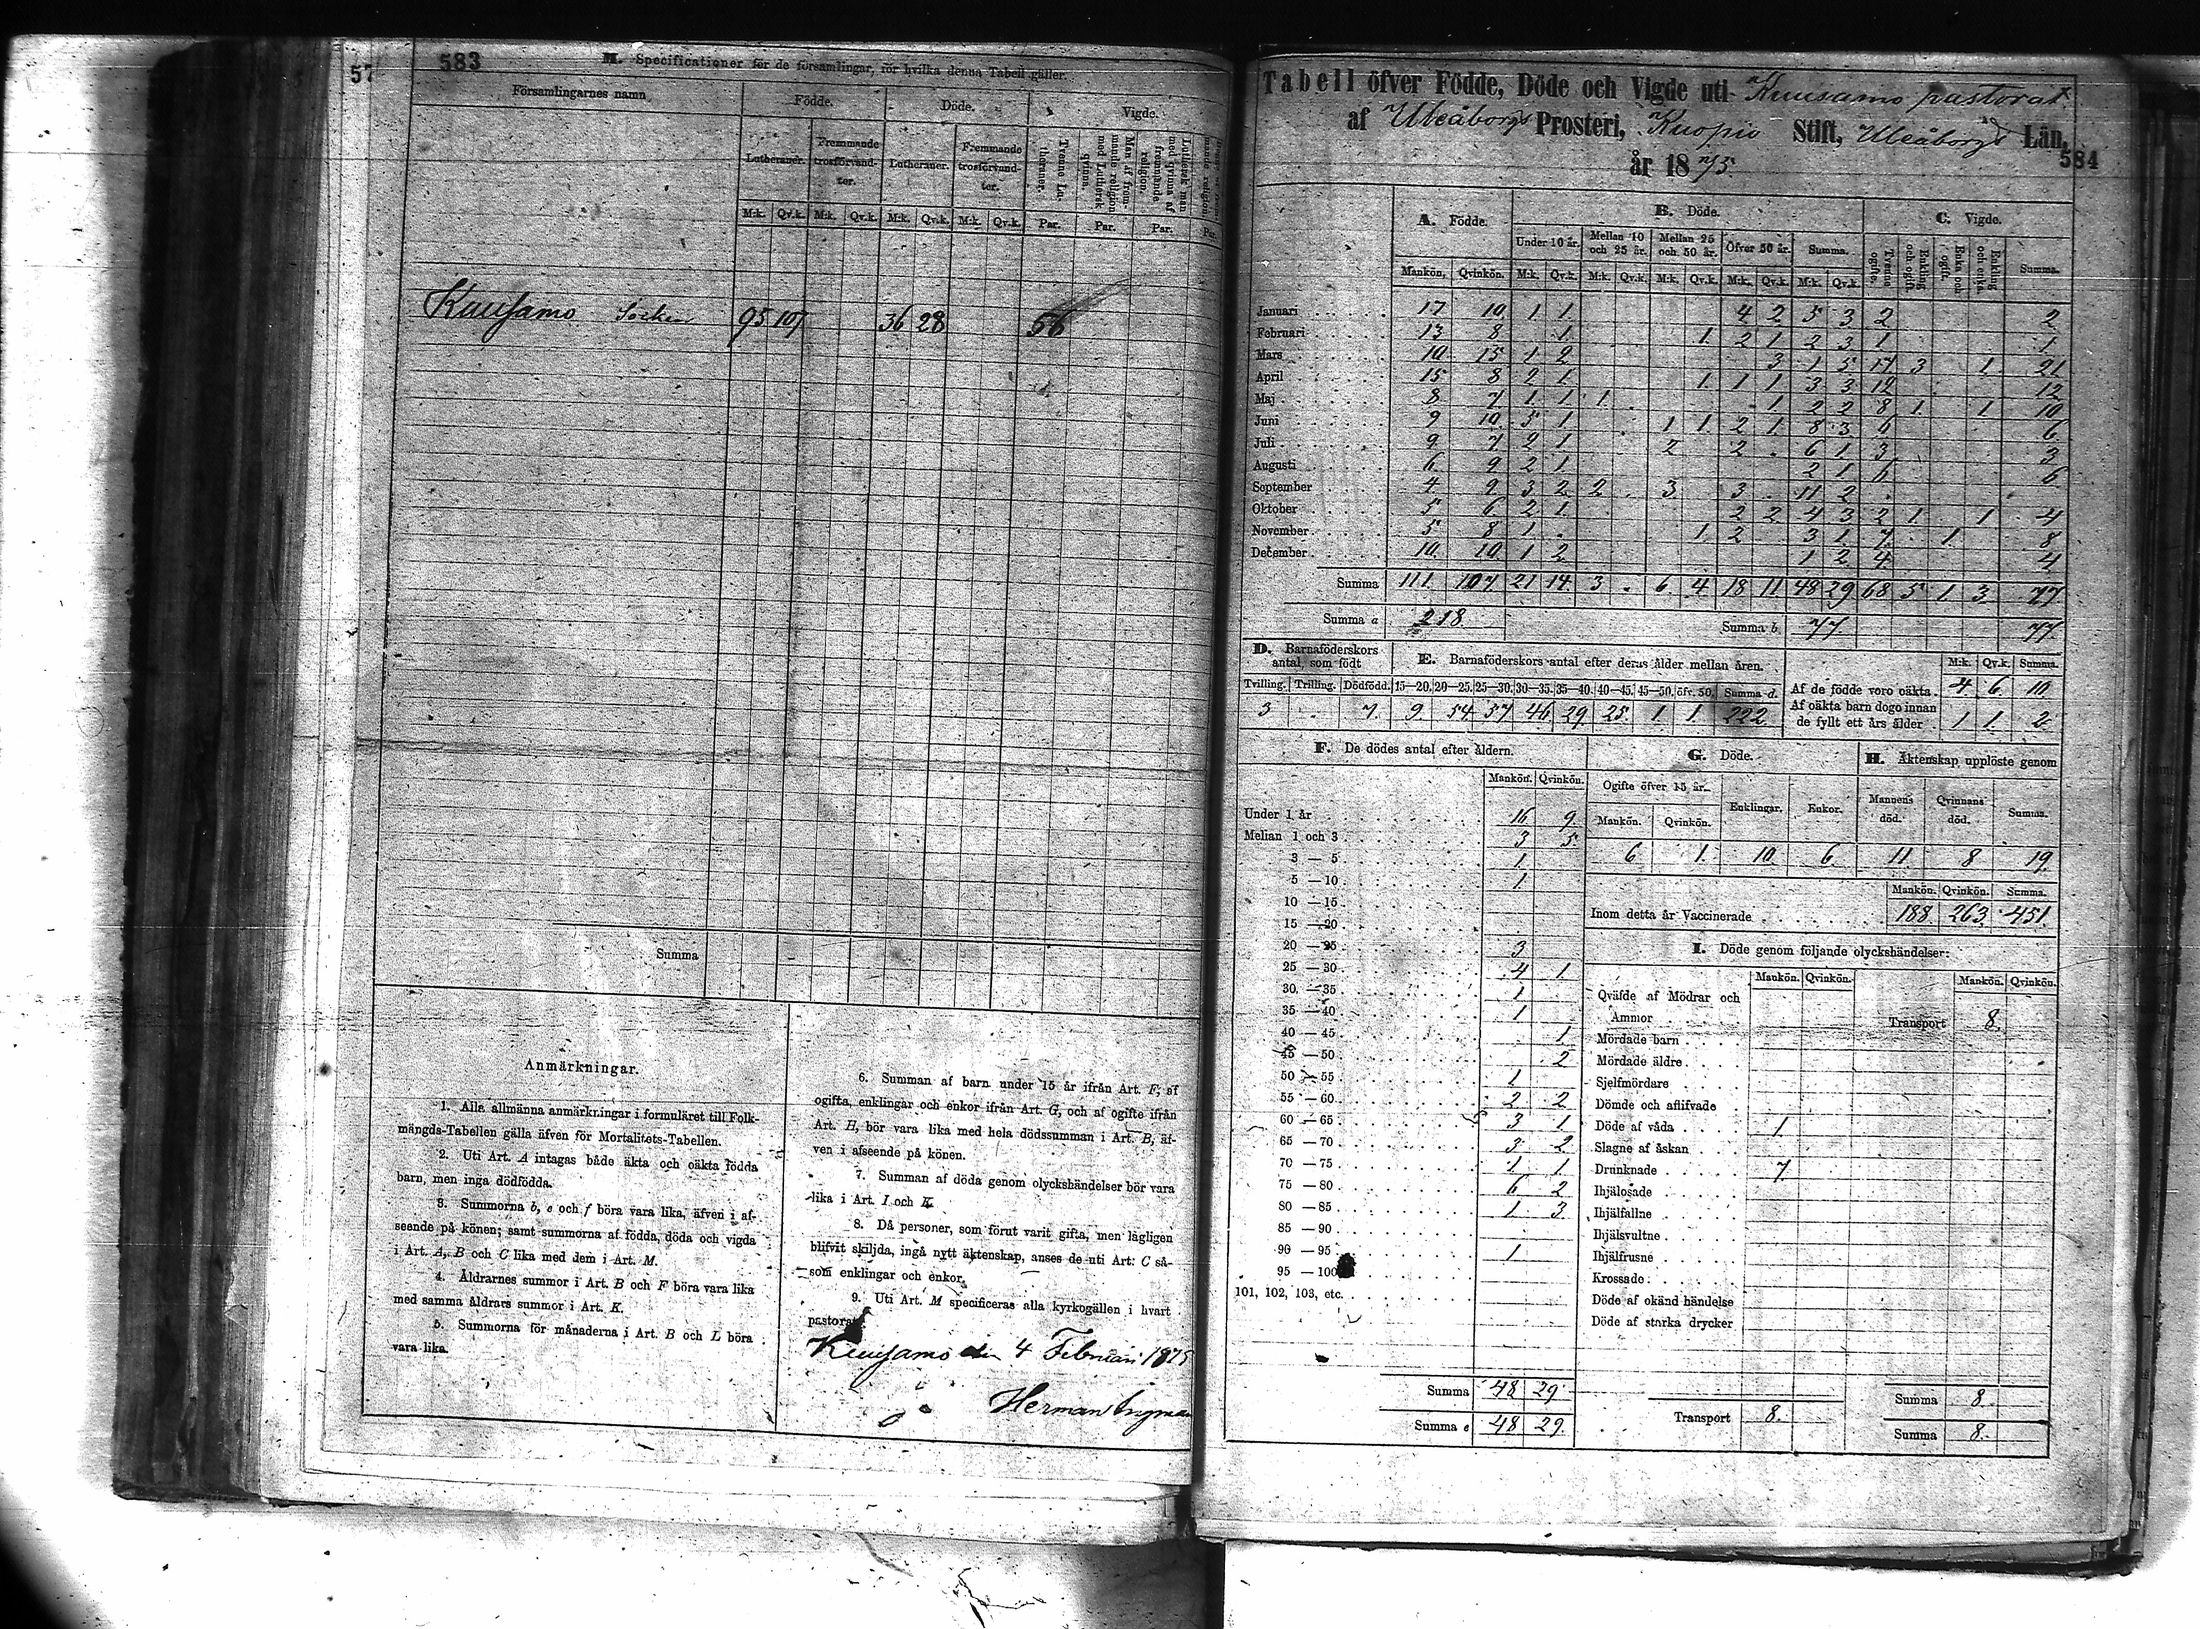 57
583
M. Specificationer för de församlingar, för hvilka denna Tabell gäller.
Församlingarnes namn
Födde. Döde. Vigde.
Lutheraner. Fremmande trosförvandter. Lutheraner. Fremmande trosförvandter.
Tvenne Lutheraner.
Man af fremmande religion med Luthersk qvinna.
Luthersk man med qvinna af fremmande religion.
M:k. Qv.k. M:k. Qv.k. M:k. Qv.k. M:k. Qv.k. Par. Par. Par. Par.
Kuusamo Socken 95 107 36 28 56
Summa
Anmärkningar.
1. Alla allmänna anmärkningar i formuläret till Folkmängds-Tabellen gälla äfven för Mortalitets-Tabellen.
2. Uti Art. A intagas både äkta och oäkta födda
barn, men inga dödfödda.
3. Summorna b, e och f böra vara lika, äfven i afseende på könen; samt summorna af födda, döda och vigda
i Art. A, B och C lika med dem i Art. M.
4. Åldrarnes summor i Art. B och F böra vara lika
med samma åldrars summor i Art. K.
5. Summorna för månaderna i Art. B och L böra
vara lika.
6. Summan af barn under 15 år ifrån Art. F, af
ogifta, enklingar och enkor ifrån Art. G, och af ogifte ifrån
Art. H, bör vara lika med hela dödssumman i Art. B, äfven i afseende på könen.
7. Summan af döda genom olyckshändelser bör vara
lika i Art. I och K.
8. Då personer, som förut varit gifta, men lagligen
blifvit skiljda, ingå nytt äktenskap, anses de uti Art: C såsom enklingar och enkor.
9. Uti Art. M specificeras alla kyrkogällen i hvart
pastorat.
Kuusamo den 4 Februari 1875
Herman Ingman
Tabell öfver Födde, Döde och Vigde uti Kuusamo pastorat
af Uleåborgs Prosteri, Kuopio Stift, Uleåborgs Län,
år 1875.
584
A. Födde. B. Döde. C. Vigde.
Under 10 år. Mellan 10 och 25 år. Mellan 25 och 50 år. Öfver 50 år. Summa. Tvenne ogifte. Enkling och ogift. Enka och ogift. Enkling och enka. Summa.
Mankön. Qvinkön. M:k. Qv.k. M:k. Qv.k. M:k. Qv.k. M:k. Qv.k. M:k. Qv.k.
Januari 17 10 1 1 4 2 5 3 2 2
Februari 13 8 1 1 2 1 2 3 1 1
Mars 10 15 1 2 3 1 5 17 3 1 21
April 15 8 2 1 1 1 1 3 3 12 12
Maj 8 7 1 1 1 1 2 2 8 1 1 10
Juni 9 10 5 1 1 1 2 1 8 3 6 6
Juli 9 7 2 1 2 2 6 1 3 3
Augusti 6 9 2 1 2 1 6 6
September 4 9 3 2 2 3 3 11 2
Oktober 5 6 2 1 2 2 4 3 2 1 1 4
November 5 8 1 1 2 3 1 7 1 8
December 10 10 1 2 1 2 4 4
Summa 111 107 21 14 3 6 4 18 11 48 29 68 5 1 3 77
Summa a 218 Summa b 77 77
D. Barnaföderskors antal, som född
E. Barnaföderskors antal efter deras ålder mellan åren.
M:k. Qv.k. Summa.
Tvilling. Trilling. Dödfödd. 15—20. 20—25. 25—30. 30—35. 35—40. 40—45. 45—50. öfv. 50. Summa d.
3 7. 9. 54 57 46 29 25. 1. 1. 222
Af de födde voro oäkta 4 6 10
Af oäkta barn dogo innan
de fyllt ett års ålder 1 1 2
F. De dödes antal efter åldern.
Mankön. Qvinkön.
Under 1 år 16 9
Mellan 1 och 3 3 5
3 — 5 1
5 — 10 1
10 — 15
15 — 20
20 — 25 3
25 — 30 4 1
30 — 35 1
35 — 40 1
40 — 45 1
45 — 50 2
50 — 55 1
55 — 60 2 2
60 — 65 3 1
65 — 70 3 2
70 — 75 1 1
75 — 80 6 2
80 — 85 1 3
85 — 90
90 — 95 1
95 — 100
101, 102, 103, etc.
Summa 48 29
Summa e 48 29
G. Döde.
Ogifte öfver 15 år. Enklingar. Enkor.
Mankön. Qvinkön.
6 1 10 6
H. Äktenskap upplöste genom
Mannens död. Qvinnans död. Summa.
11 8 19
Mankön. Qvinkön. Summa.
Inom detta år Vaccinerade 188 263 451
I. Döde genom följande olyckshändelser:
Mankön. Qvinkön. Mankön. Qvinkön.
Qväfde af Mödrar och
Ammor
Transport 8.
Mördade barn
Mördade äldre
Sjelfmördare
Dömde och aflifvade
Döde af våda 1
Slagne af åskan
Drunknade 7
Ihjälosade
Ihjälfallne
Ihjälsvultne
Ihjälfrusne
Krossade
Döde af okänd händelse
Döde af starka drycker
Transport 8.
Summa 8
Summa 8